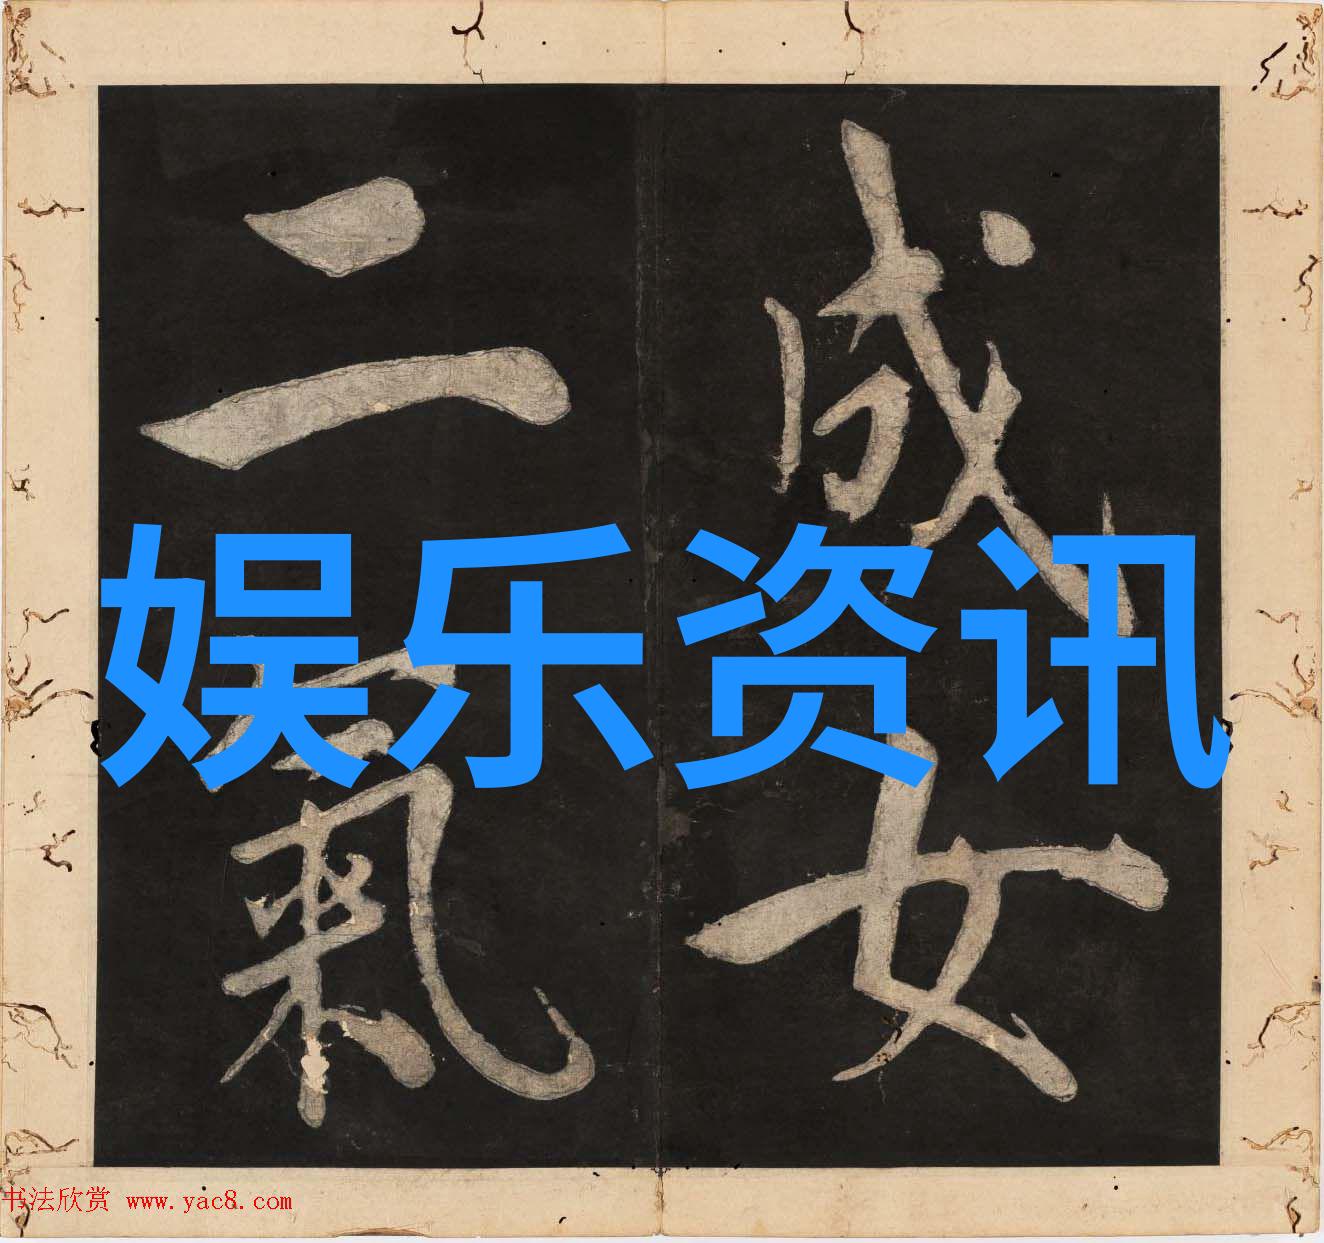 成女
二氣
娱乐资讯
书法欣赏 www.yac8.com